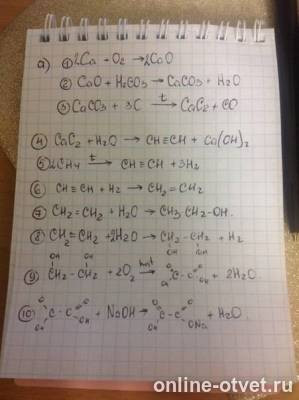 а) ① 2Ca + O₂ → 2CaO
② CaO + H₂CO₃ → CaCO₃ + H₂O
③ CaCO₃ + 3C →(t) CaC₂ + CO
④ CaC₂ + H₂O → CH≡CH + Ca(OH)₂
⑤ 2CH₄ →(t) CH≡CH + 3H₂
⑥ CH≡CH + H₂ → CH₂=CH₂
⑦ CH₂=CH₂ + H₂O → CH₃CH₂-OH.
⑧ CH₂=CH₂ + 2H₂O → CH₂-CH₂ + H₂
OH OH
OH OH
⑨ CH₂-CH₂ + 2O₂ → C-C + 2H₂O
O OH O OH
⑩ C-C + NaOH → C-C + H₂O.
O OH O OH O OH O ONa
online-otvet.ru